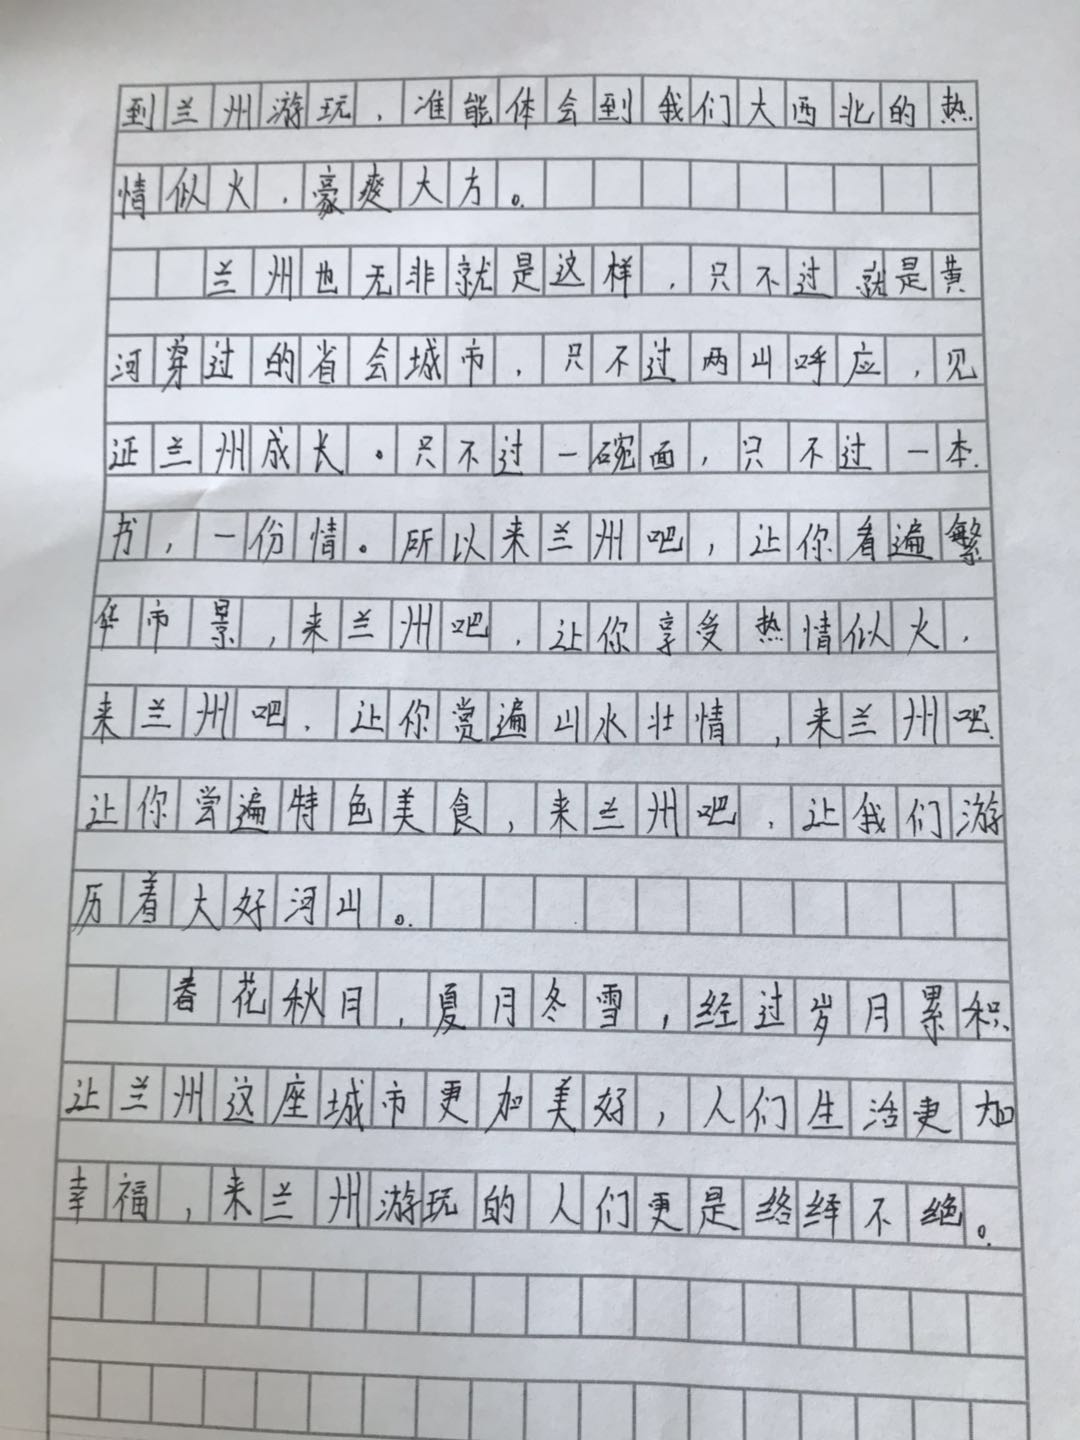 到兰州游玩，准能体会到我们大西北的热
情似火，豪爽大方。
兰州也无非就是这样，只不过就是黄
河穿过的省会城市，只不过两山呼应，见
证兰州成长。只不过一碗面，只不过一本
书，一份情。所以来兰州吧，让你看遍繁
华市景，来兰州吧，让你享受热情似火，
来兰州吧，让你赏遍山水壮情，来兰州吧，
让你尝遍特色美食，来兰州吧，让我们游
历着大好河山。
春花秋月，夏月冬雪，经过岁月累积，
让兰州这座城市更加美好，人们生活更加
幸福，来兰州游玩的人们更是络绎不绝。